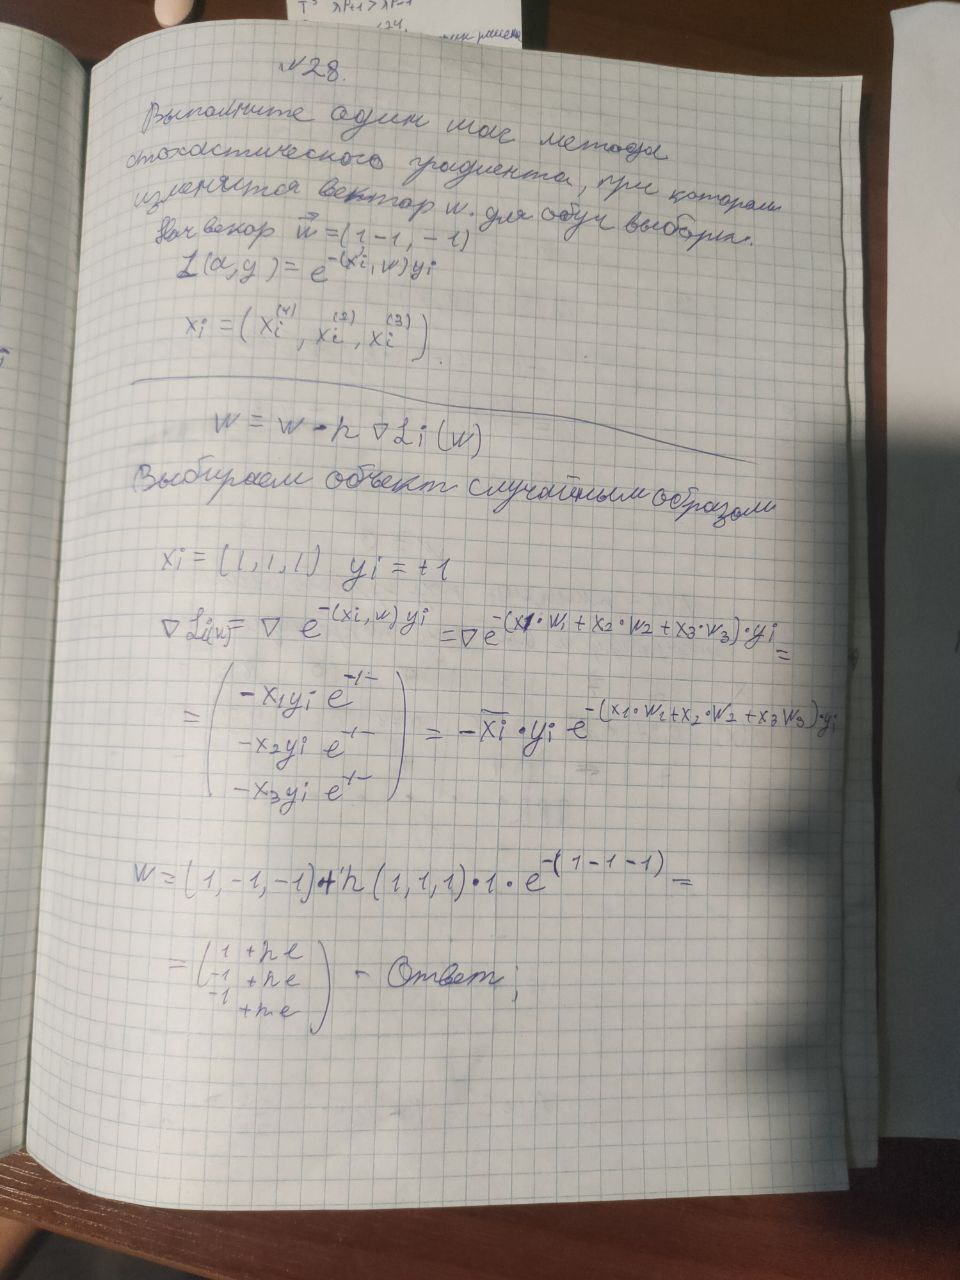 №28.
Выполните один шаг метода
стохастического градиента, при котором
изменяется вектор w. для обуч выборки.
Нач векор w⃗ = (1, -1, -1)
L(a,y) = e^{-(xi, w) yi}
xi = (xi^{(1)}, xi^{(2)}, xi^{(3)}).
w = w - h ∇Li(w)
Выбираем объект случайным образом
xi = (1, 1, 1) yi = +1
∇Li(w) = ∇ e^{-(xi, w) yi} = ∇e^{-(x1·w1 + x2·w2 + x3·w3)·yi} =
= ( -x1yi e^{-//-}
-x2yi e^{-//-}
-x3yi e^{-//-} ) = -x̄i · yi e^{-(x1·w1+x2·w2+x3w3)·yi}
w = (1, -1, -1) + h (1, 1, 1)·1·e^{-(1-1-1)} =
= ( 1 + he
-1 + he
-1 + he ) - Ответ;